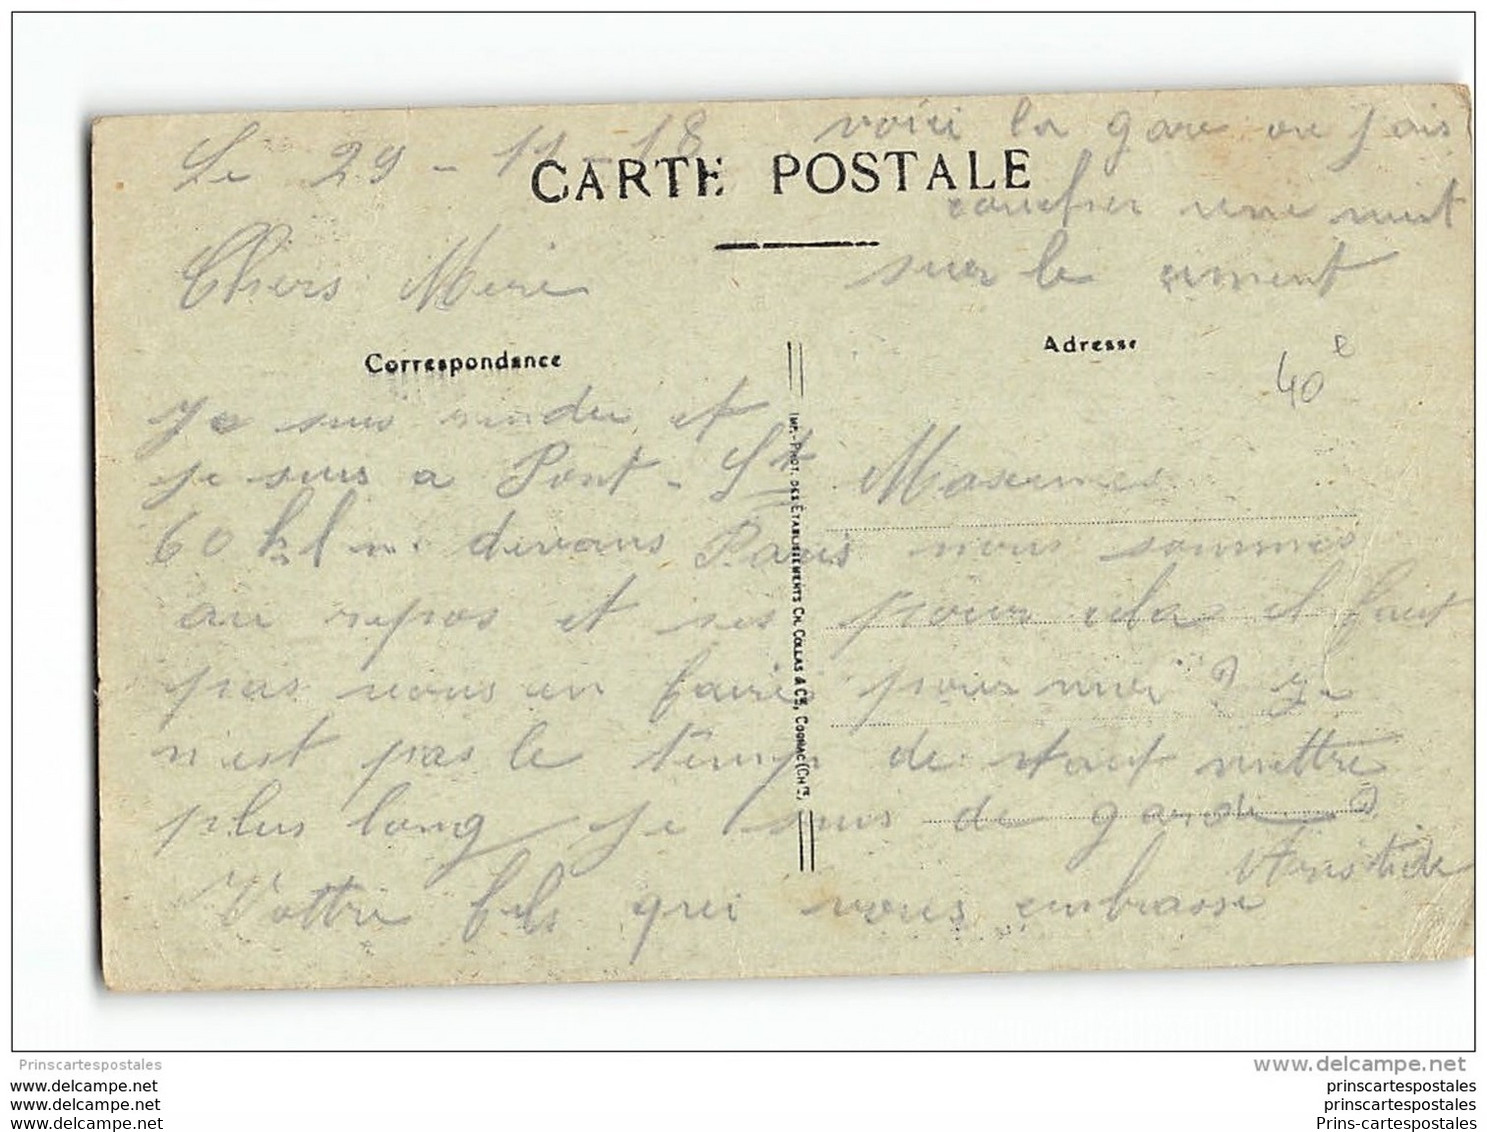 Le 29 - 11 - 18
voici la gare ou jais
CARTE POSTALE
coucher une nuit
sur le ciment
Chers Mere
Correspondance
Adresse
40 e
Je suis rendu et
je suis a Pont - St Maxumes
60 klm devans Paris nous sommes
au repos et ses pour cela il faut
pas vous en faire pour moi
n'est pas le temp de tout mettre
plus long je suis de garde
Aristide
Vottre fils qui vous embrasse
IMP.-PHOT. DES ÉTABLISSEMENTS CH. COLLAS & Cie, COGNAC (CHte)
Prinscartespostales
www.delcampe.net
www.delcampe.net
www.delcampe.net
www.delcampe.net
prinscartespostales
prinscartespostales
Prins-cartespostales